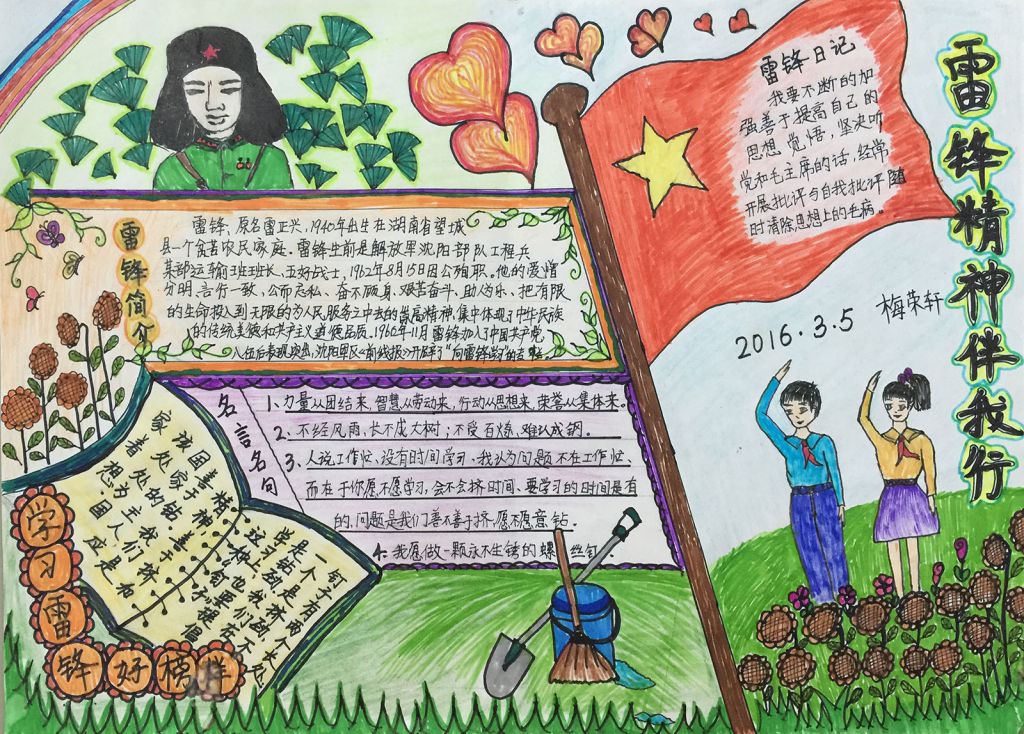 雷锋精神伴我行
雷锋日记
我要不断的加
强善于提高自己的
思想觉悟,坚决听
党和毛主席的话,经常
开展批评与自我批评随
时清除思想上的毛病。
2016.3.5 梅荣轩
雷锋简介
雷锋,原名雷正兴,1940年出生在湖南省望城
县一个贫苦农民家庭。雷锋生前是解放军沈阳部队工程兵
某部运输班班长、五好战士,1962年8月15日因公殉职。他的爱憎
分明、言行一致、公而忘私、奋不顾身、艰苦奋斗、助人为乐、把有限
的生命投入到无限的为人民服务之中去的崇高精神,集中体现了中华民族
的传统美德和共产主义道德品质。1960年11月雷锋加入了中国共产党,
入伍后表现突出,沈阳军区《前线报》开辟了“向雷锋学习”的专栏。
名言名句
1、力量从团结来,智慧从劳动来,行动从思想来,荣誉从集体来。
2、不经风雨,长不成大树;不受百炼,难以成钢。
3、人说工作忙、没有时间学习、我认为问题不在工作忙
而在于你愿不愿学习,会不会挤时间、要学习的时间是有
的,问题是我们善不善于挤,愿不愿意钻。
4、我愿做一颗永不生锈的螺丝钉
精神善于挤和
善于钻我们是
国家的主人应
该处处为国
家着想
学习雷锋好榜样